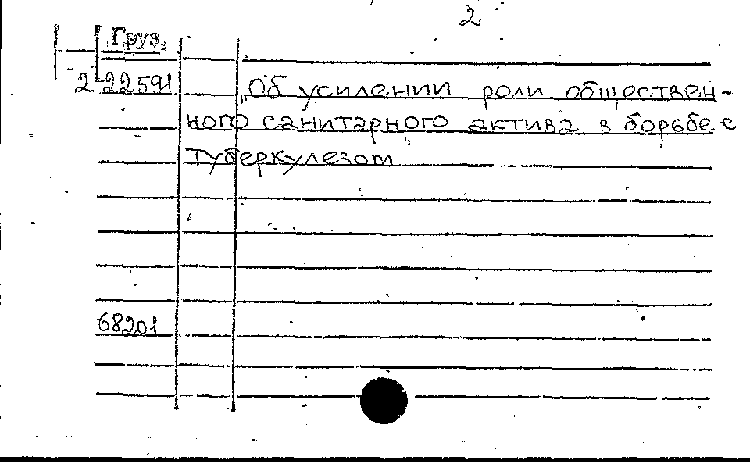 2
Груз.
2 22591 „Об усилении роли обществен-
ного санитарного актива в борьбе с
туберкулезом
68201